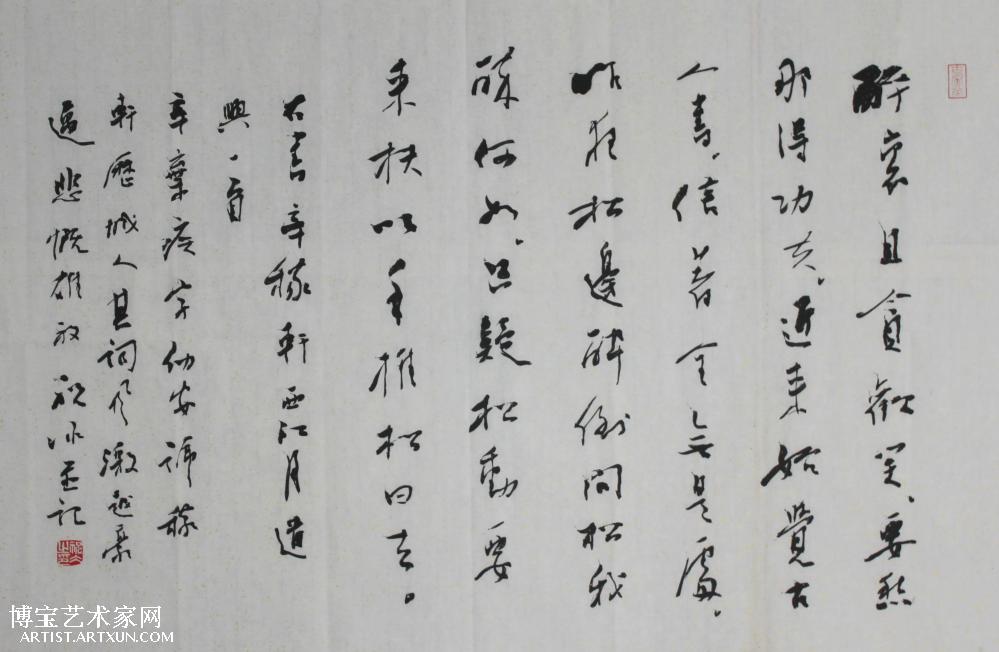 醉裏且貪歡笑、要愁
那得功夫。近来始覺古
人書、信著全無是處。
昨夜松邊醉倒問松我
醉何如。只疑松動要
来扶以手推松曰去。
右書辛稼軒西江月遣
興一首
辛棄疾字幼安號稼
軒歷城人其詞風激越豪
邁悲慨雄放 並記
博宝艺术家网
ARTIST.ARTXUN.COM